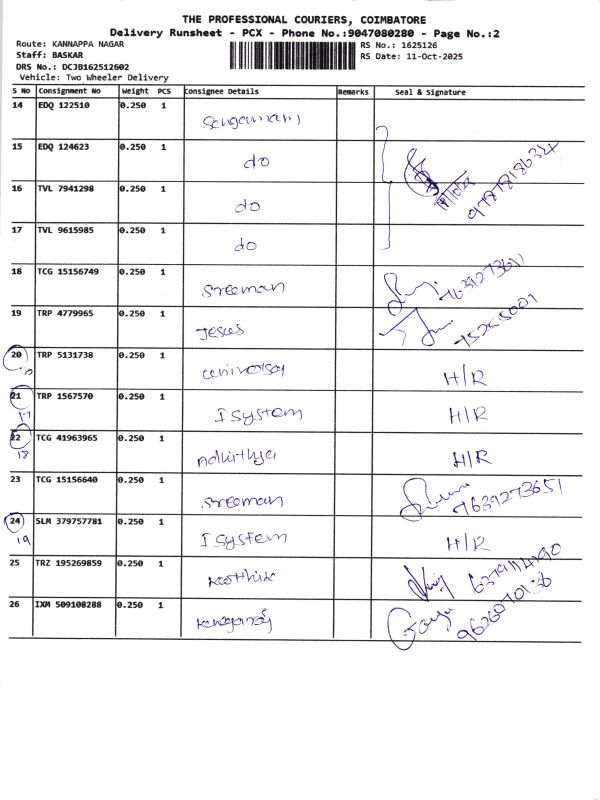 THE PROFESSIONAL COURIERS, COIMBATORE
Delivery Runsheet - PCX - Phone No.:9047080280 - Page No.:2
Route: KANNAPPA NAGAR RS No.: 1625126
Staff: BASKAR RS Date: 11-Oct-2025
DRS No.: DCJB162512602
Vehicle: Two Wheeler Delivery
S No Consignment No Weight PCS Consignee Details Remarks Seal & Signature
14 EDQ 122510 0.250 1
15 EDQ 124623 0.250 1 do
16 TVL 7941298 0.250 1 do
17 TVL 9615985 0.250 1 do
18 TCG 15156749 0.250 1 Sreeman 7639273651
19 TRP 4779965 0.250 1 Jesus
20 TRP 5131738 0.250 1 universal H/R
21 TRP 1567570 0.250 1 I system H/R
17
22 TCG 41963965 0.250 1 H/R
18
23 TCG 15156640 0.250 1 Sreeman 7639273651
24 SLM 379757781 0.250 1 I system H/R
19
25 TRZ 195269859 0.250 1 Karthik
26 IXM 509108288 0.250 1 Kanagaraj 9626070136